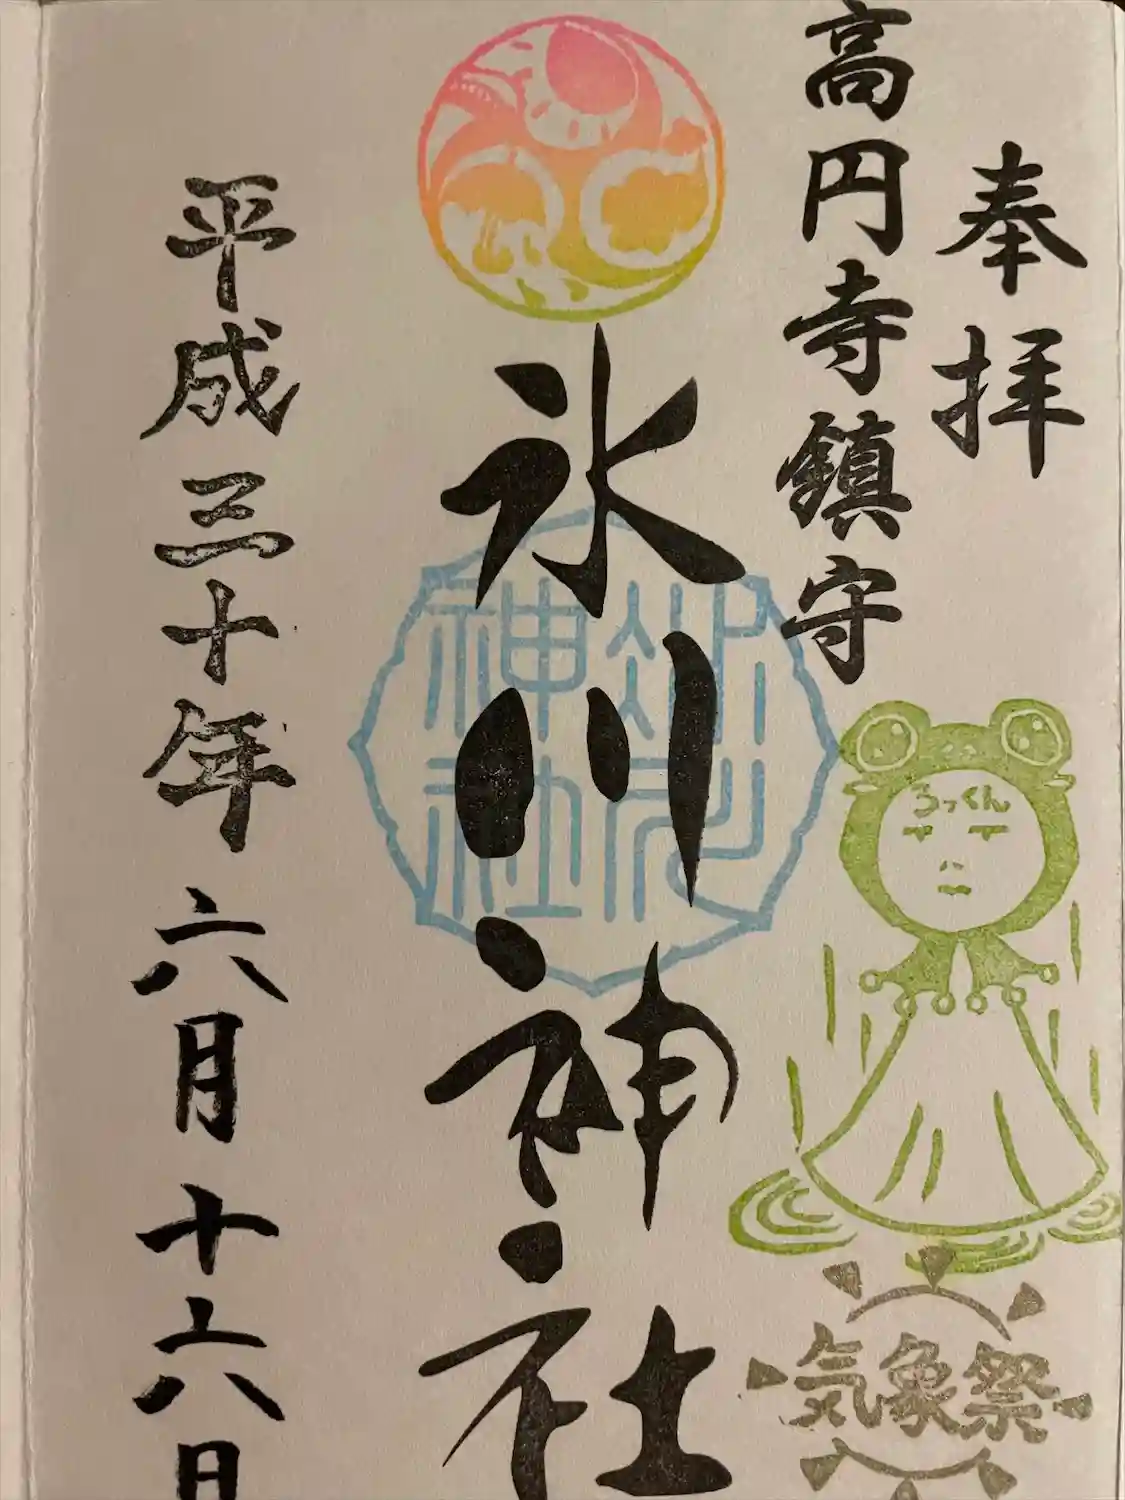 奉拝
高円寺鎮守
氷川神社
氷川
神社
ろっくん
気象祭
平成三十年六月十六日